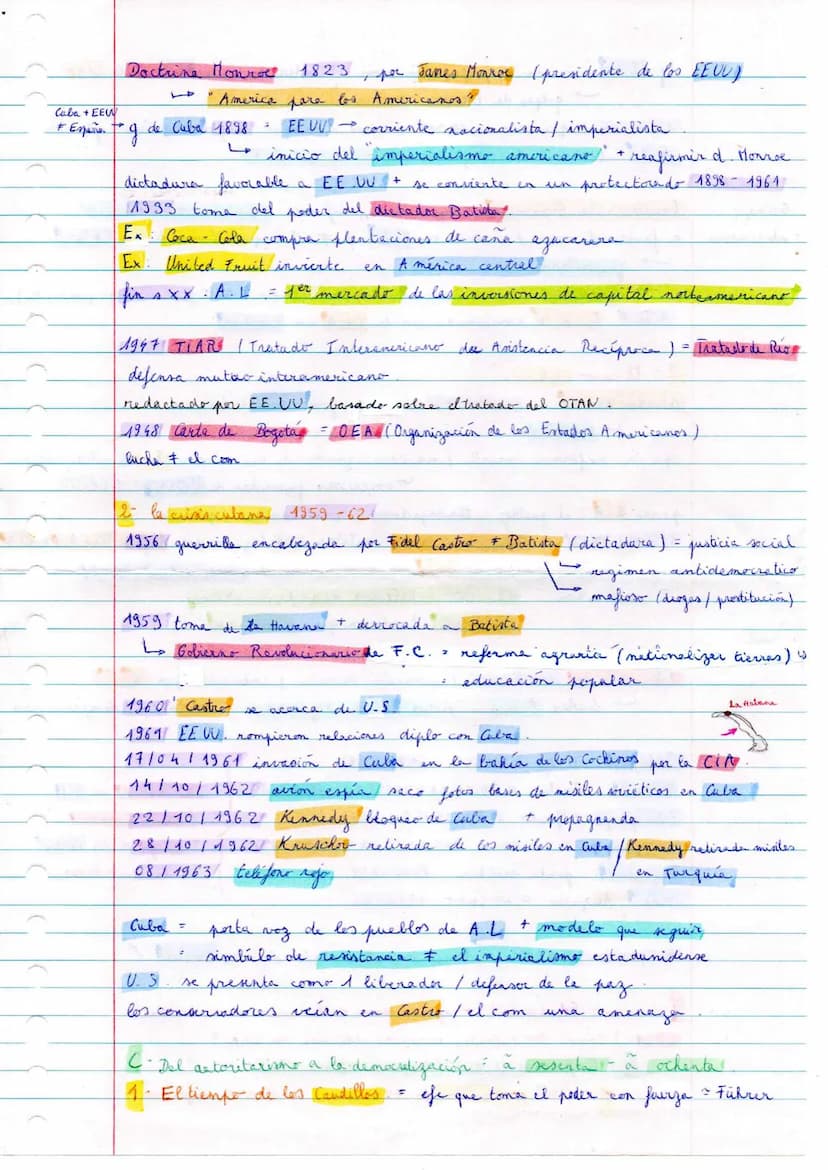 Doctrina Monroe 1823, por James Monroe (presidente de los EEUU)
↳ "America para los Americanos"
Cuba + EEUU
≠ España → g de Cuba 1898 = EEUU → corriente nacionalista / imperialista.
↳ inicio del "imperialismo americano" + reafirmir d. Monroe
dictadura favorable a EE.UU + se convierte en un protectorado 1898 - 1961
1933 toma del poder del dictador Batista.
Ex: Coca-Cola compra plentaciones de caña azucarera
Ex: United Fruit invierte en América central
fin s XX : A.L = 1er mercado de las inversiones de capital norteamericano
1947 TIAR (Tratado Interamericano de Asistencia Recíproca) = Tratado de Río
defensa mutuo interamericano.
redactado por EE.UU, basado sobre el tratado del OTAN.
1948 Carta de Bogotá = OEA (Organización de los Estados Americanos)
lucha ≠ el com
2- la crisis cubana 1959-62
1956 guerrilla encabezada por Fidel Castro ≠ Batista (dictadura) = justicia social
↳ regimen antidemocratico
↳ mafioso (drogas / prostitución)
1959 toma de La Havana + derrocada a Batista
↳ Gobierno Revolucionario de F.C. = reforma agraria (nationalizar tierras)
= educación popular
1960 Castro se acerca de U.S.
La Habana
1961 EE UU. rompieron relaciones diplo con Cuba.
17/04/1961 invasión de Cuba en la bahía de los Cochinos por la CIA.
14/10/1962 avión espía saco fotos bases de misiles soviéticos en Cuba
22/10/1962 Kennedy bloqueo de Cuba + propagnenda
28/10/1962 Kruschov retirada de los misiles en Cuba / Kennedy retirada misiles
en Turquía
08/1963 teléfono rojo
Cuba = porta voz de los pueblos de A.L + modelo que seguir
= simbúlo de resistancia ≠ el imperialismo estadunidense
U.S. se presenta como 1 liberador / defensor de la paz.
los conservadores veían en Castro / el com una amenaza.
C- Del autoritarismo a la democratización = ã sesenta - ã ochenta
1- El tiempo de los Caudillos. = efe que toma el poder con fuerza = Führer